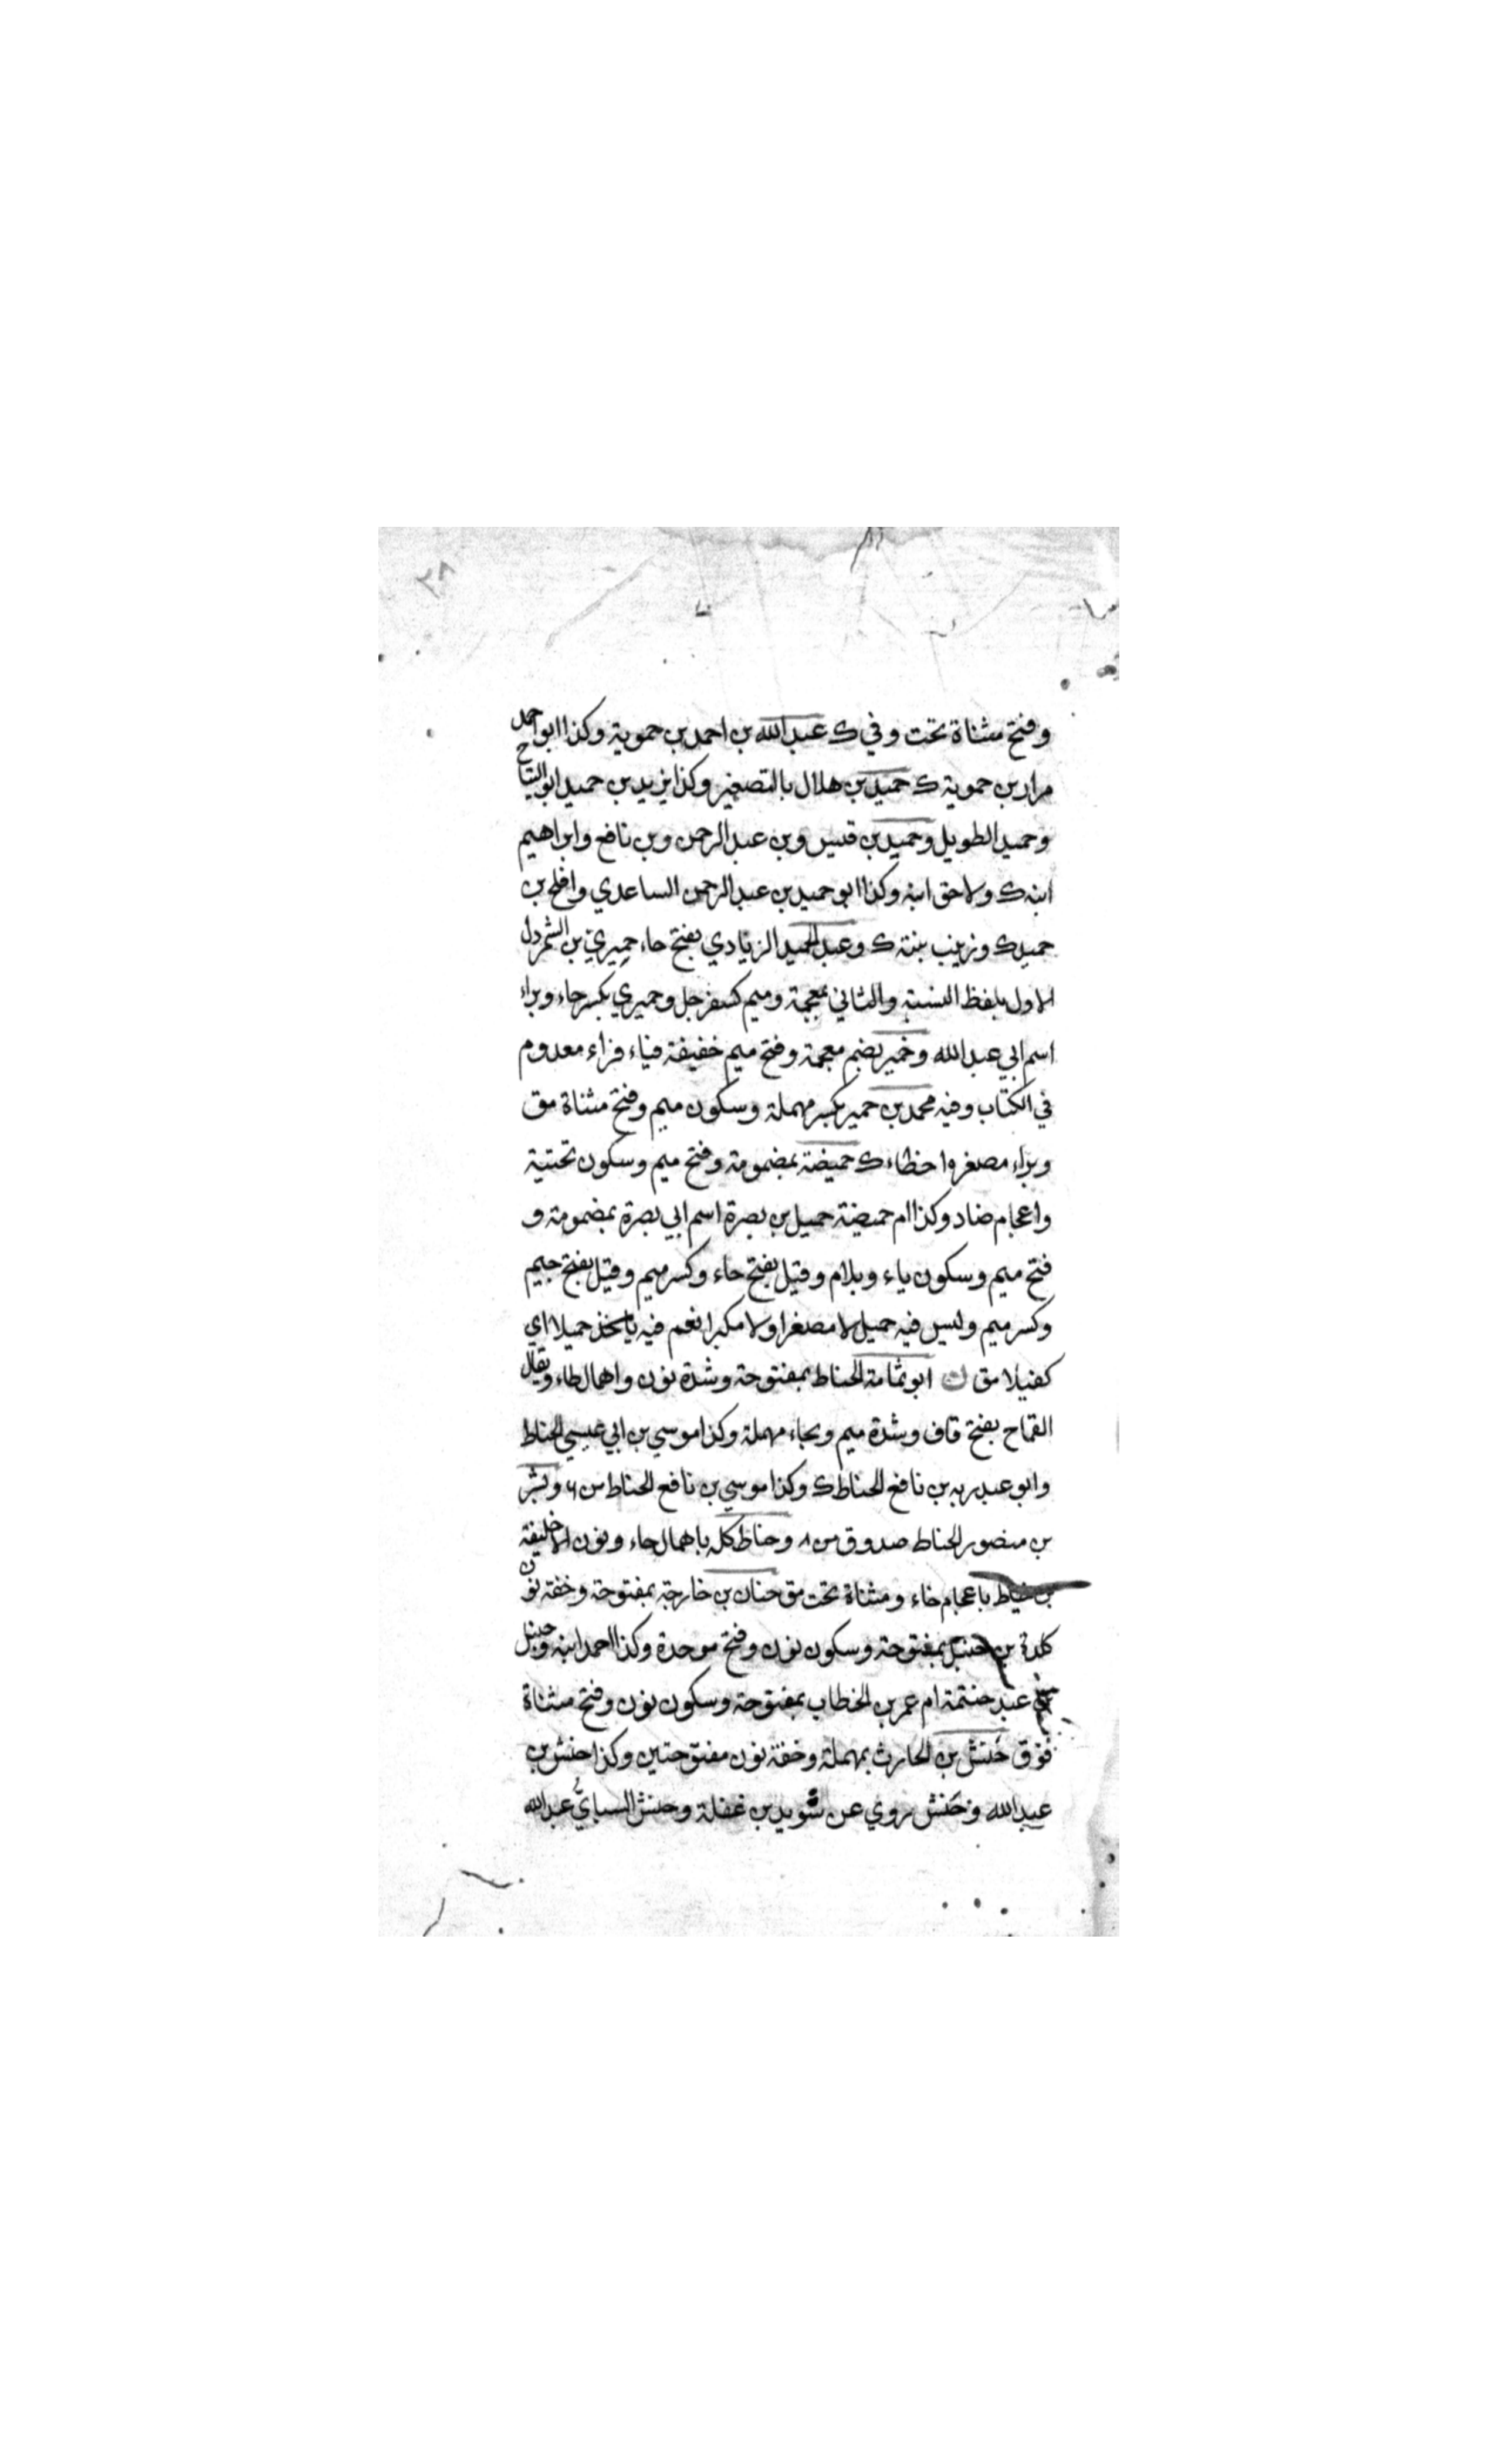 ٣٨
وفتح مثناة تحت وفي ك عبد الله بن احمد بن حموية وكذا ابو احمد
مرار بن حموية ك حميد بن هلال بالتصغير وكذا يزيد بن حميد ابو التياح
وحميد الطويل وحميد بن قيس وبن عبد الرحمن وبن نافع وابراهيم
ابنه ك ولاحق ابنه وكذا ابو حميد بن عبد الرحمن الساعدي وافلح بن
حميد ك وزينب بنته ك وعبد الحميد الزيادي بفتح حاء حميري بن الشمردل
الاول بلفظ النسبة والثاني بمعجمة وميم كسفرجل وحميري بكسر حاء وبراء
اسم ابي عبد الله وخمير بضم معجمة وفتح ميم خفيفة فياء فزاء معدوم
في الكتاب وفيه محمد بن حمير بكسر مهملة وسكون ميم وفتح مثناة مق
وبراء مصغره اخطاء ك حميضة بمضمومة وفتح ميم وسكون تحتية
واعجام ضاد وكذا ام حميضة حميل بن بصرة اسم ابي بصرة بمضمومة و
فتح ميم وسكون ياء وبلام وقيل بفتح حاء وكسر ميم وقيل بفتح جيم
وكسر ميم وليس فيه حميل لا مصغرا ولا مكبرا نعم فيه ياخذ حميلا اي
كفيلا مق ن ابو ثمامة الحناط بمفتوحة وشدة نون واهمال طاء ويقال
القماح بفتح قاف وشدة ميم وبحاء مهملة وكذا موسي بن ابي عيسي الحناط
وابو عبد ربه بن نافع الحناط ك وكذا موسي بن نافع الحناط س ٦ وبشر
بن منصور الحناط صدوق من ٨ وحناط كله باهمال حاء ونون الا خليفة
بن خياط باعجام خاء ومثناة تحت مق حنان بن خارجة بمفتوحة وخفة نون
كلدة بن حنبل بمفتوحة وسكون نون وفتح موحدة وكذا احمد ابنه وحنبل
بن عبد حنتمة ام عمر بن الخطاب بمفتوحة وسكون نون وفتح مثناة
فوق حنش بن الحارث بمهملة وخفة نون مفتوحتين وكذا حنش بن
عبد الله وحنش روي عن سويد بن غفلة وحنش السباي عبد الله